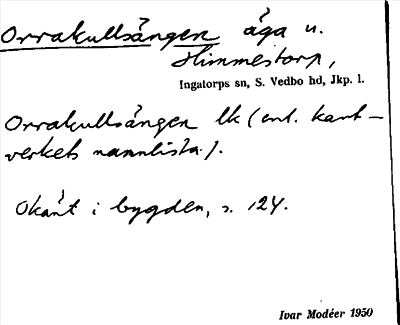 Orrakullsängen äga u.
Himmestorp,
Ingatorps sn, S. Vedbo hd, Jkp. l.
Orrakullsängen lk (enl. kart-
verkets namnlista).
Okänt i bygden, s. 124.
Ivar Modéer 1950